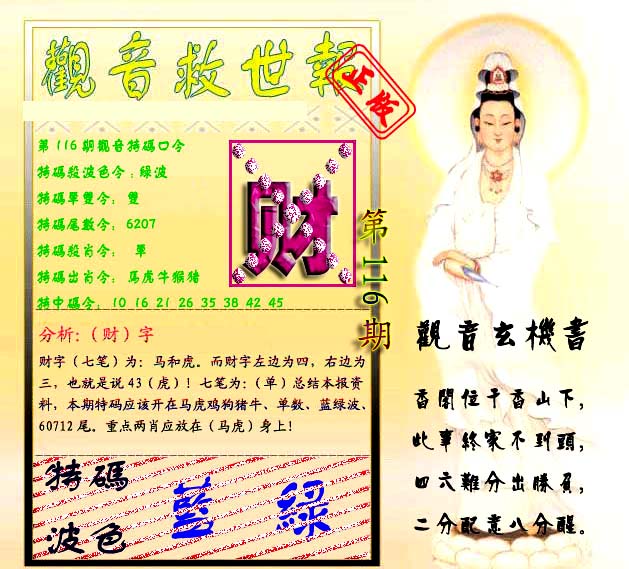 觀音救世報
正版
第116期觀音特碼口令
特碼殺波色令：綠波
特碼單雙令： 雙
特碼尾數令： 6207
特碼殺肖令： 單
特碼出肖令： 馬虎牛猴猪
特中碼令： 10 16 21 26 35 38 42 45
财
第116期
分析:（财）字
财字（七笔）为：马和虎。而财字左边为四，右边为
三，也就是说 43（虎）！七笔为:（单）总结本报资
料，本期特码应该开在马虎鸡狗猪牛、单数、蓝绿波、
60712 尾。重点两肖应放在（马虎）身上！
特碼
波色
藍 綠
觀音玄機書
香閣位于香山下，
此事終家不到頭，
四六難分出勝負，
二分配意八分醒。